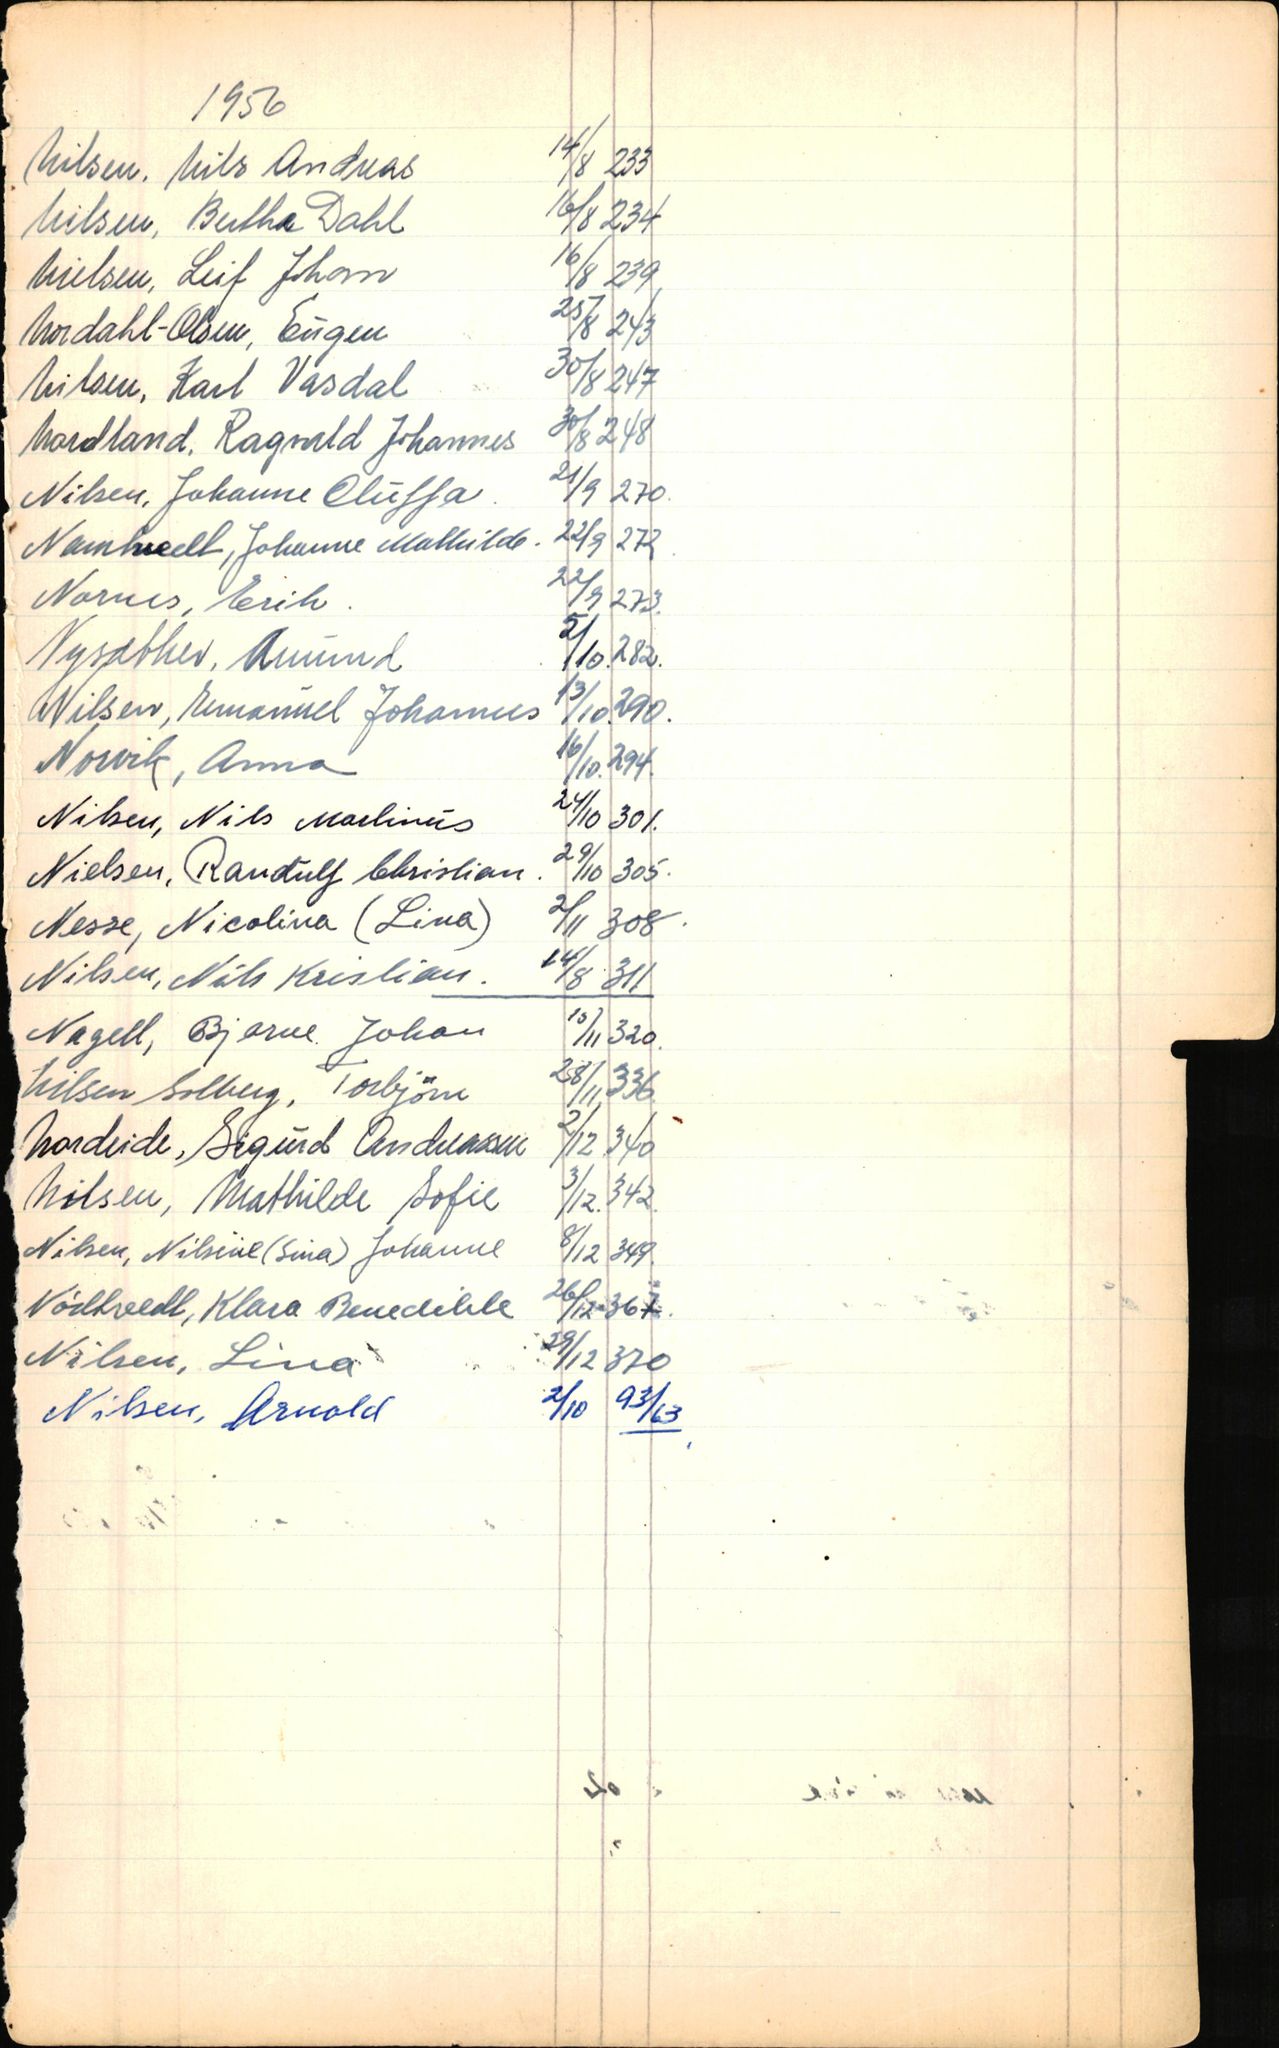 1956
Nilsen, Nils Andreas 14/8 233
Nilsen, Bertha Dahl 16/8 234
Nielsen, Leif Johan 16/8 239
Nordahl-Olsen, Eugen 25/8 243
Nilsen, Karl Vasdal 30/8 247
Nordland, Ragnvald Johannes 30/8 248
Nilsen, Johanne Oluffa. 21/9 270.
Namtvedt, Johanne Mathilde. 22/9 272
Nornes, Erik. 22/9 273.
Nysæther, Amund 5/10. 282.
Nilsen, Emanuel Johannes 13/10. 290.
Norvik, Anna 16/10. 294.
Nilsen, Nils Martinus 24/10 301.
Nielsen, Randulf Christian. 29/10 305.
Nesse, Nicolina (Lina) 2/11 308.
Nilsen, Nils Kristian. 14/8 311
Nagell, Bjarne Johan 15/11 320.
Nilsen Solberg, Torbjörn 28/11 336
Nordeide, Sigurd Andreassen 2/12 340
Nilsen, Mathilde Sofie 3/12. 342.
Nilsen, Nilsine (Sina) Johanne 8/12 349.
Nödtvedt, Klara Benedikte 26/12 367.
Nilsen, Lina 29/12 370
Nilsen, Arnold 2/10 93/63